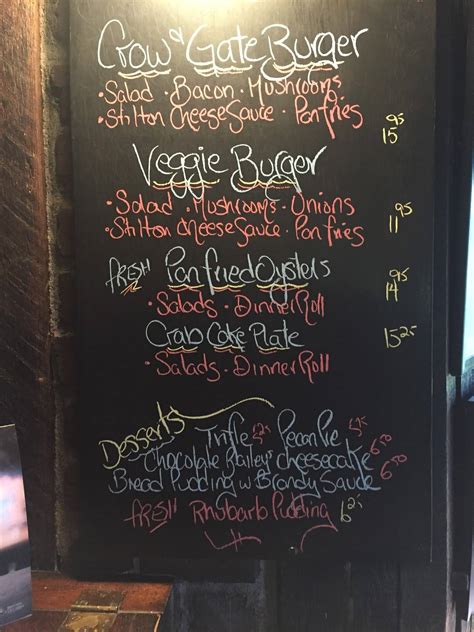 Crow & Gate Burger
• Salad • Bacon • Mushrooms
• Stilton Cheese Sauce • Pan fries 15 95
Veggie Burger
• Salad • Mushrooms • Unions
• Stilton Cheese Sauce • Pan fries 11 95
FRESH Pan fried Oysters 14 95
• Salads • Dinner Roll
Crab Cake Plate 15 25
• Salads • Dinner Roll
Desserts
Trifle 5 25 Pecan Pie 5 75
Chocolate Bailey's cheesecake 6 50
Bread Pudding w Brandy Sauce 6 50
FRESH Rhubarb Pudding 6 25